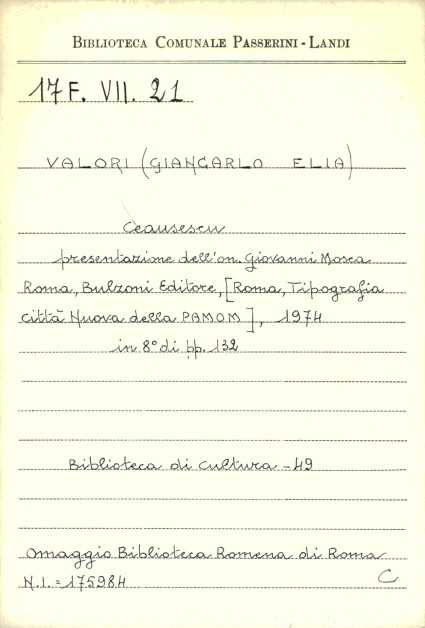 BIBLIOTECA COMUNALE PASSERINI - LANDI
17 F. VII. 21
VALORI (GIANCARLO ELIA)
Ceausescu
presentazione dell'on. Giovanni Mosca
Roma, Bulzoni Editore, [Roma, Tipografia
Città Nuova della PAMOM], 1974
in 8° di pp. 132
Biblioteca di cultura - 49
Omaggio Biblioteca Romena di Roma
N.I. = 175984 C